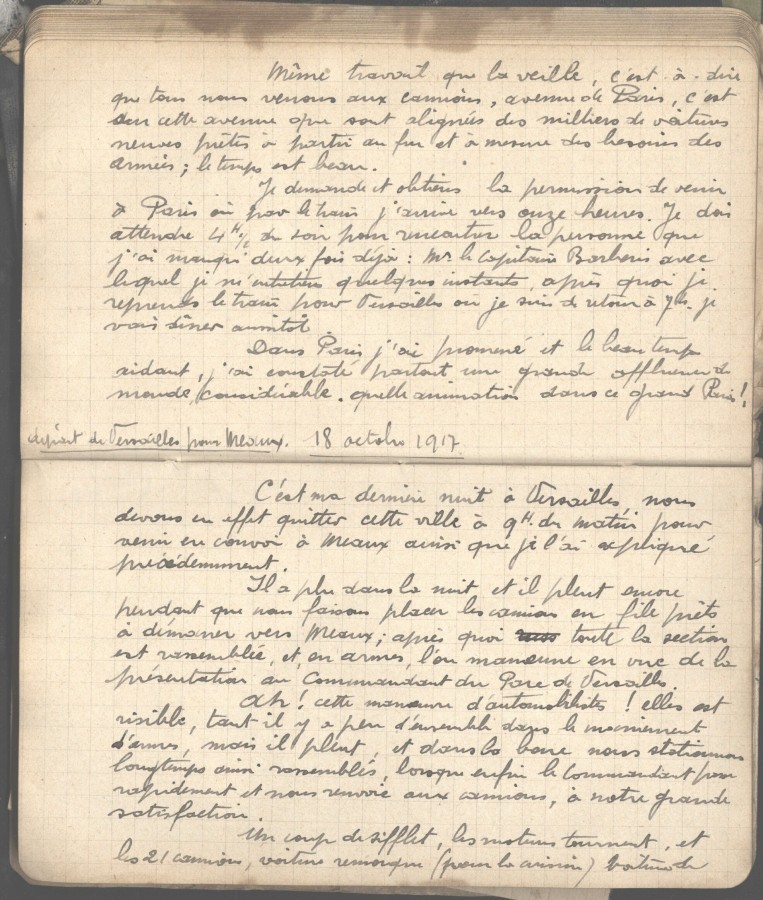 Même travail que la veille, c'est-à-dire
que tous nous venons aux camions, avenue de Paris, c'est
sur cette avenue que sont alignées des milliers de voitures
neuves prêtes à partir au fur et à mesure des besoins des
armées; le temps est beau.
Je demande et obtiens la permission de venir
à Paris où par le train j'arrive vers onze heures. Je dois
attendre 4H½ du soir pour rencontrer la personne que
j'ai manqué deux fois déjà: Mr. le Capitaine Barberis avec
lequel je m'entretiens quelques instants, après quoi je
reprends le train pour Versailles où je suis de retour à 7H. je
vais dîner aussitôt.
Dans Paris j'ai promené et le beau temps
aidant, j'ai constaté partout une grande affluence de
monde, considérable. quelle animation dans ce grand Paris!
départ de Versailles pour Meaux. 18 octobre 1917.
C'est ma dernière nuit à Versailles, nous
devons en effet quitter cette ville à 9H. du matin pour
venir en convoi à Meaux ainsi que je l'ai expliqué
précédemment.
Il a plu dans la nuit et il pleut encore
pendant que nous faisons placer les camions en file prêts
à démarrer vers Meaux; après quoi toute la section
est rassemblée, et, en armes, l'on manœuvre en vue de la
présentation au Commandant du Parc de Versailles.
Ah! cette manœuvre d'automobilistes! elle est
risible, tant il y a peu d'ensemble dans le maniement
d'armes, mais il pleut, et dans la boue nous stationnons
longtemps ainsi rassemblés, lorsque enfin le Commandant passe
rapidement et nous renvoie aux camions, à notre grande
satisfaction.
Un coup de sifflet, les moteurs tournent, et
les 21 camions, voiture remorque (pour la cuisine) voiture de